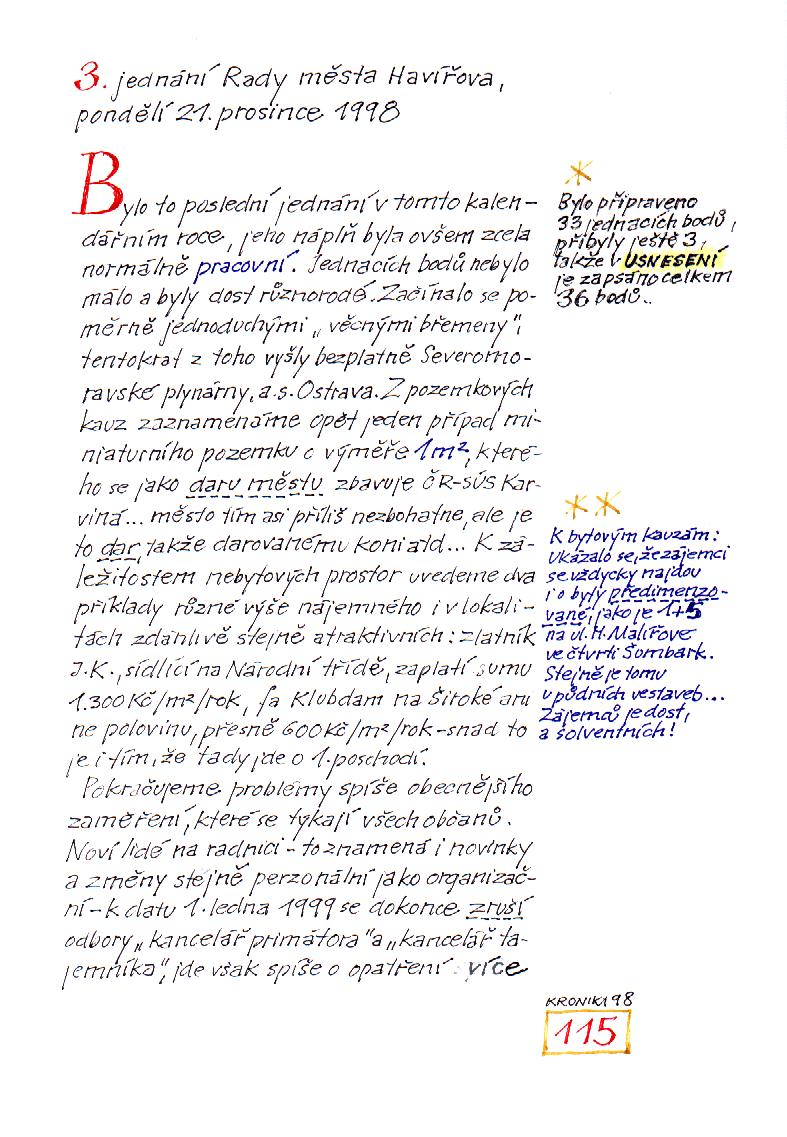 3. jednání Rady města Havířova,
pondělí 21. prosince 1998
Bylo to poslední jednání v tomto kalen-
dářním roce, jeho náplň byla ovšem zcela
normálně pracovní. Jednacích bodů nebylo
málo a byly dost různorodé. Začínalo se po-
měrně jednoduchými „věcnými břemeny",
tentokrát z toho vyšly bezplatně Severomo-
ravské plynárny, a.s. Ostrava. Z pozemkových
kauz zaznamenáme opět jeden případ mi-
niaturního pozemku o výměře 1m², které-
ho se jako daru městu zbavuje ČR-SÚS Kar-
viná... město tím asi příliš nezbohatne, ale je
to dar, takže darovanému koni atd... K zá-
ležitostem nebytových prostor uvedeme dva
příklady různé výše nájemného i v lokali-
tách zdánlivě stejně atraktivních: zlatník
J.K., sídlící na Národní třídě, zaplatí sumu
1.300 Kč/m²/rok, fa Klubdam na Široké ani
ne polovinu, přesně 600 Kč/m²/rok - snad to
je i tím, že tady jde o 1. poschodí.
Pokračujeme problémy spíše obecnějšího
zaměření, které se týkají všech občanů.
Noví lidé na radnici - to znamená i novinky
a změny stejně perzonální jako organizač-
ní - k datu 1. ledna 1999 se dokonce zruší
odbory „kancelář primátora" a „kancelář ta-
jemníka", jde však spíše o opatření více
*
Bylo připraveno
33 jednacích bodů,
přibyly ještě 3,
takže v USNESENÍ
je zapsáno celkem
36 bodů..
**
K bytovým kauzám:
ukázalo se, že zájemci
se vždycky najdou
i o byty předimenzo-
vané, jako je 1+5
na ul. H. Malířové
ve čtvrti Šumbark.
Stejně je tomu
u půdních vestaveb...
Zájemců je dost,
a solventních!
KRONIKA 98
115